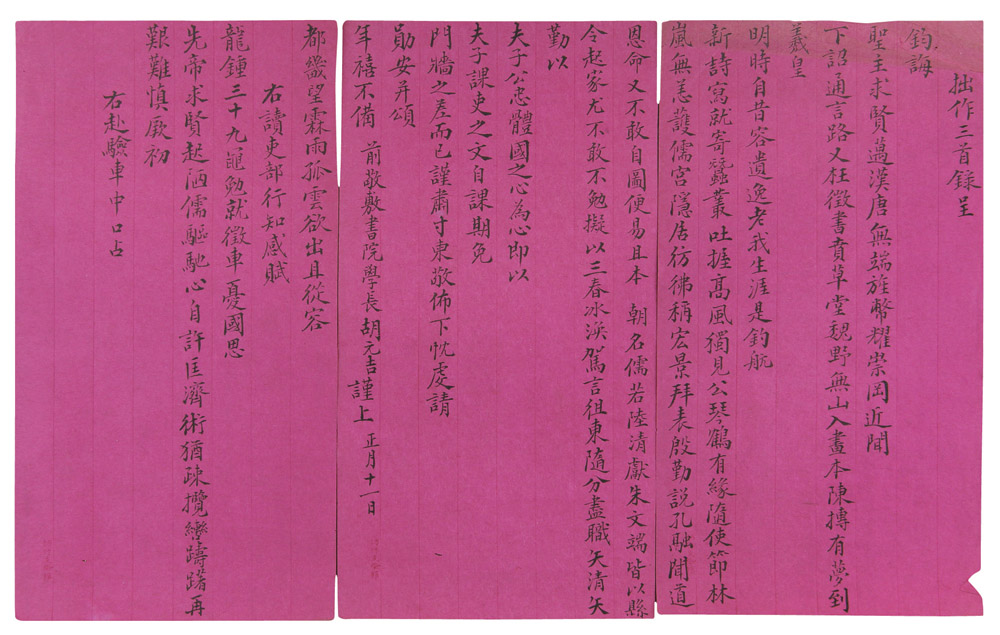 拙作三首錄呈
鈞誨
聖主求賢邁漢唐無端旌幣耀崇岡近聞
下詔通言路又枉徵書賁草堂魏野無山入畫本陳摶有夢到
羲皇
明時自昔容遺逸老我生涯是釣航
新詩寫就寄蠶叢吐握高風獨見公琴鶴有緣隨使節林
嵐無恙護儒宮隱居彷彿稱宏景拜表殷勤說孔融聞道
恩命又不敢自圖便易且本 朝名儒若陸清獻朱文端皆以縣
令起家尤不敢不勉擬以三春冰渙駕言徂東隨分盡職矢清矢
勤以
夫子公忠體國之心為心即以
夫子課吏之文自課期免
門牆之差而已謹肅寸柬敬佈下忱虔請
勛安并頌
年禧不備 前敬敷書院學長胡元吉謹上 正月十一日
都畿望霖雨孤雲欲出且從容
右讀吏部行知感賦
龍鍾三十九黽勉就徵車憂國思
先帝求賢起陋儒驅馳心自許匡濟術猶疎攬轡躊躇再
艱難慎厥初
右赴驗車中口占